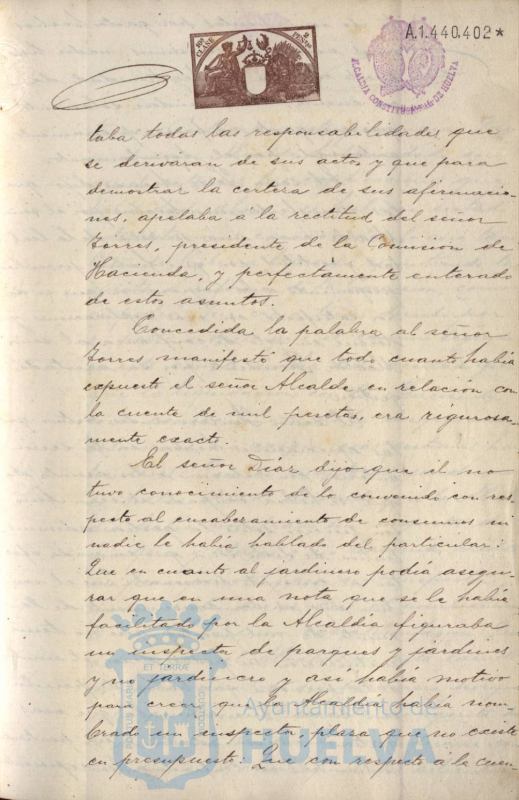 A.1.440.402*
10ª CLASE
2 PESETAS
ALCALDIA CONSTITUCIONAL DE HUELVA
taba todas las responsabilidades que
se derivaran de sus actos y que para
demostrar la certera de sus afirmacio-
nes, apelaba á la rectitud del señor
Torres, presidente de la Comisión de
Hacienda, y perfectamente enterado
de estos asuntos.
Concedida la palabra al señor
Torres manifestó que todo cuanto había
expuesto el señor Alcalde en relación con
la cuenta de mil pesetas, era rigurosa-
mente exacto.
El señor Diaz dijo que él no
tuvo conocimiento de lo convenido con res-
pecto al encabezamiento de consumos ni
nadie le había hablado del particular:
Que en cuanto al jardinero podía asegu-
rar que en una nota que se le había
facilitado por la Alcaldía figuraba
un inspector de parques y jardines
y no jardinero y así había motivo
para creer que la Alcaldía había nom-
brado un inspector, plaza que no existe
en presupuesto: Que con respecto á la cuen-
PORTUS MARIS
ET TERRÆ
CUSTODIA
Ayuntamiento de
HUELVA